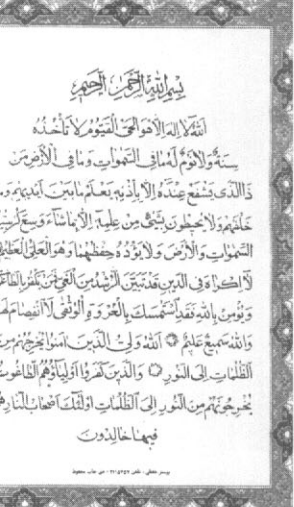 بسم الله الرحمن الرحيم
الله لا إله إلا هو الحي القيوم لا تأخذه
سنة ولا نوم له ما في السموات وما في الأرض من
ذا الذي يشفع عنده إلا بإذنه يعلم ما بين أيديهم وما
خلفهم ولا يحيطون بشيء من علمه إلا بما شاء وسع كرسيه
السموات والأرض ولا يؤده حفظهما وهو العلي العظيم
لا إكراه في الدين قد تبين الرشد من الغي فمن يكفر بالطاغوت
ويؤمن بالله فقد استمسك بالعروة الوثقى لا انفصام لها
والله سميع عليم الله ولي الذين آمنوا يخرجهم من
الظلمات إلى النور والذين كفروا أولياؤهم الطاغوت
يخرجونهم من النور إلى الظلمات أولئك أصحاب النار هم
فيها خالدون